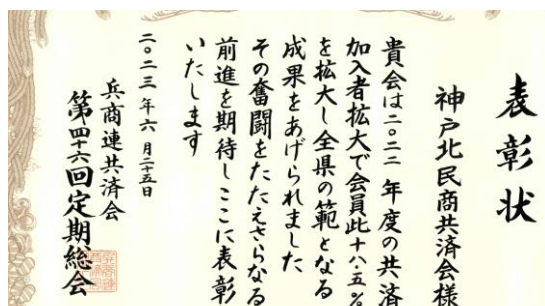 表彰状
神戸北民商共済会様
貴会は二〇二二年度の共済
加入者拡大で会員此十八・五%
を拡大し全県の範となる
成果をあげられました
その奮闘をたたえさらなる
前進を期待しここに表彰
いたします
二〇二三年六月二十五日
兵商連共済会
第四十六回定期総会